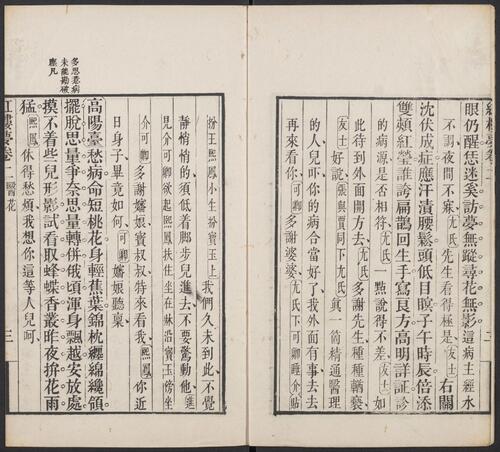 眼仍醒恁迷奚訪夢無蹤尋花無影這病土經水
不調夜間不寐〔尤氏〕先生看得極是〔友士〕右關
沈伏成症應汗漬腰鬆頭低日暝子午時辰倍添
雙頰紅瑩誰誇扁鵲回生手寫良方高明詳証診
的病源是否相符〔尤氏〕一點說得不差〔友士〕如
此待到外面開方去〔尤氏〕多謝先生種種鞧褻
〔友士〕好說〔張與賈同下尤氏〕眞一箇精通醫理
的人兒卟你的病合當好了我外面有事去去
再來看你〔可卿〕多謝婆婆〔尤氏下可卿睡介貼
扮王熙鳳小生扮寶玉上〕我們久未到此不覺
靜悄悄的須低着脚步兒進去不要驚動他〔進
見介可卿欲起熙鳳扶住坐在牀沿寶玉傍坐
介可卿〕多謝嬸娘寶叔叔特來看我〔熙鳳〕你近
日身子畢竟如何〔可卿〕嬸娘聽稟
高陽臺愁病命短桃花身輕蕉葉錦枕纒綿纔領
擺脫思量爭奈思量轉併俄頃渾身飄越安放處
摸不着些兒形影試看取蜂蝶香叢昨夜拚花雨
猛〔熙鳳〕休得愁煩我想你這等人兒呵
紅樓夢卷二 醫花 三
多思惹病
未能勘破
塵凡